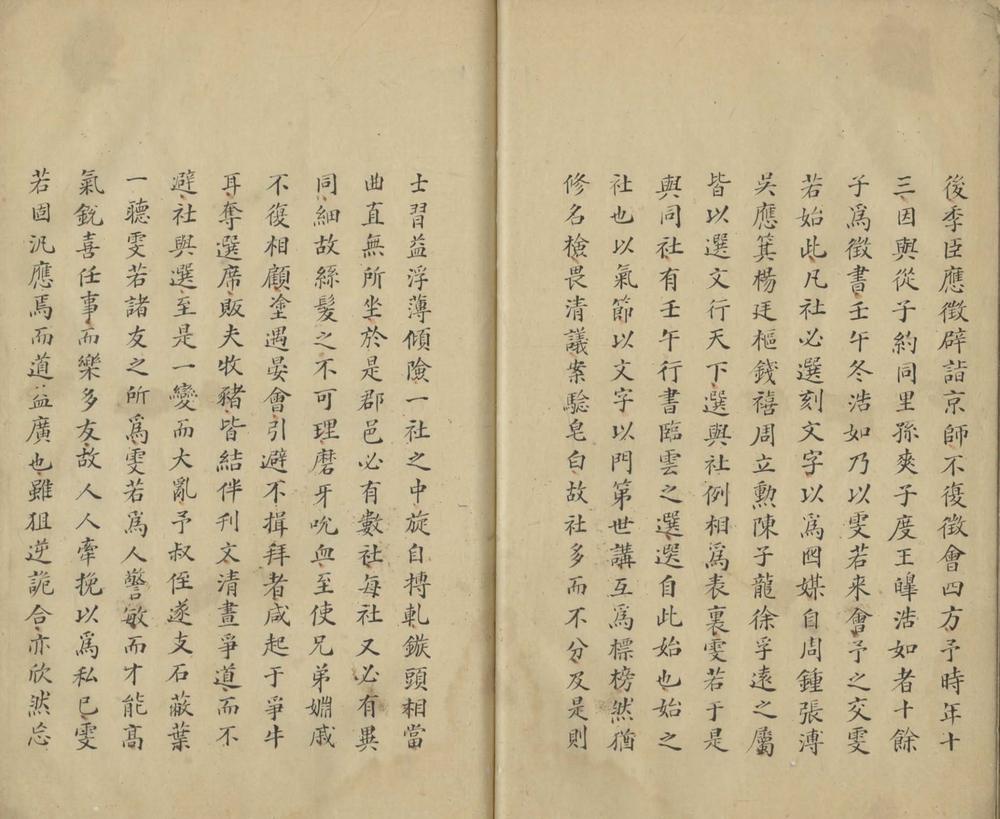 後季臣應徵辟詣京師不復徵會四方予時年十
三因與從子約同里孫爽子度王皞浩如者十餘
子爲徵書壬午冬浩如乃以雯若來會予之交雯
若始此凡社必選刻文字以爲囮媒自周鍾張溥
吳應箕楊廷樞錢禧周立勳陳子龍徐孚遠之屬
皆以選文行天下選與社例相爲表裏雯若于是
與同社有壬午行書臨雲之選選自此始也始之
社也以氣節以文字以門第世講互爲標榜然猶
修名檢畏清議案驗皂白故社多而不分及是則
士習益浮薄傾險一社之中旋自摶軋鏃頭相當
曲直無所坐於是郡邑必有數社每社又必有異
同細故絲髮之不可理磨牙吮血至使兄弟姻戚
不復相顧塗遇宴會引避不揖拜者咸起于爭牛
耳奪選席販夫牧豬皆結伴刊文清晝爭道而不
避社與選至是一變而大亂予叔侄遂支石蔽葉
一聽雯若諸友之所爲雯若爲人警敏而才能高
氣銳喜任事而樂多友故人人牽挽以爲私己雯
若固汎應焉而道益廣也雖狙逆詭合亦欣然忘